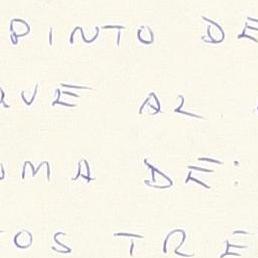 PINTO DE
QUE AL
UMA DE:
TOS TRE